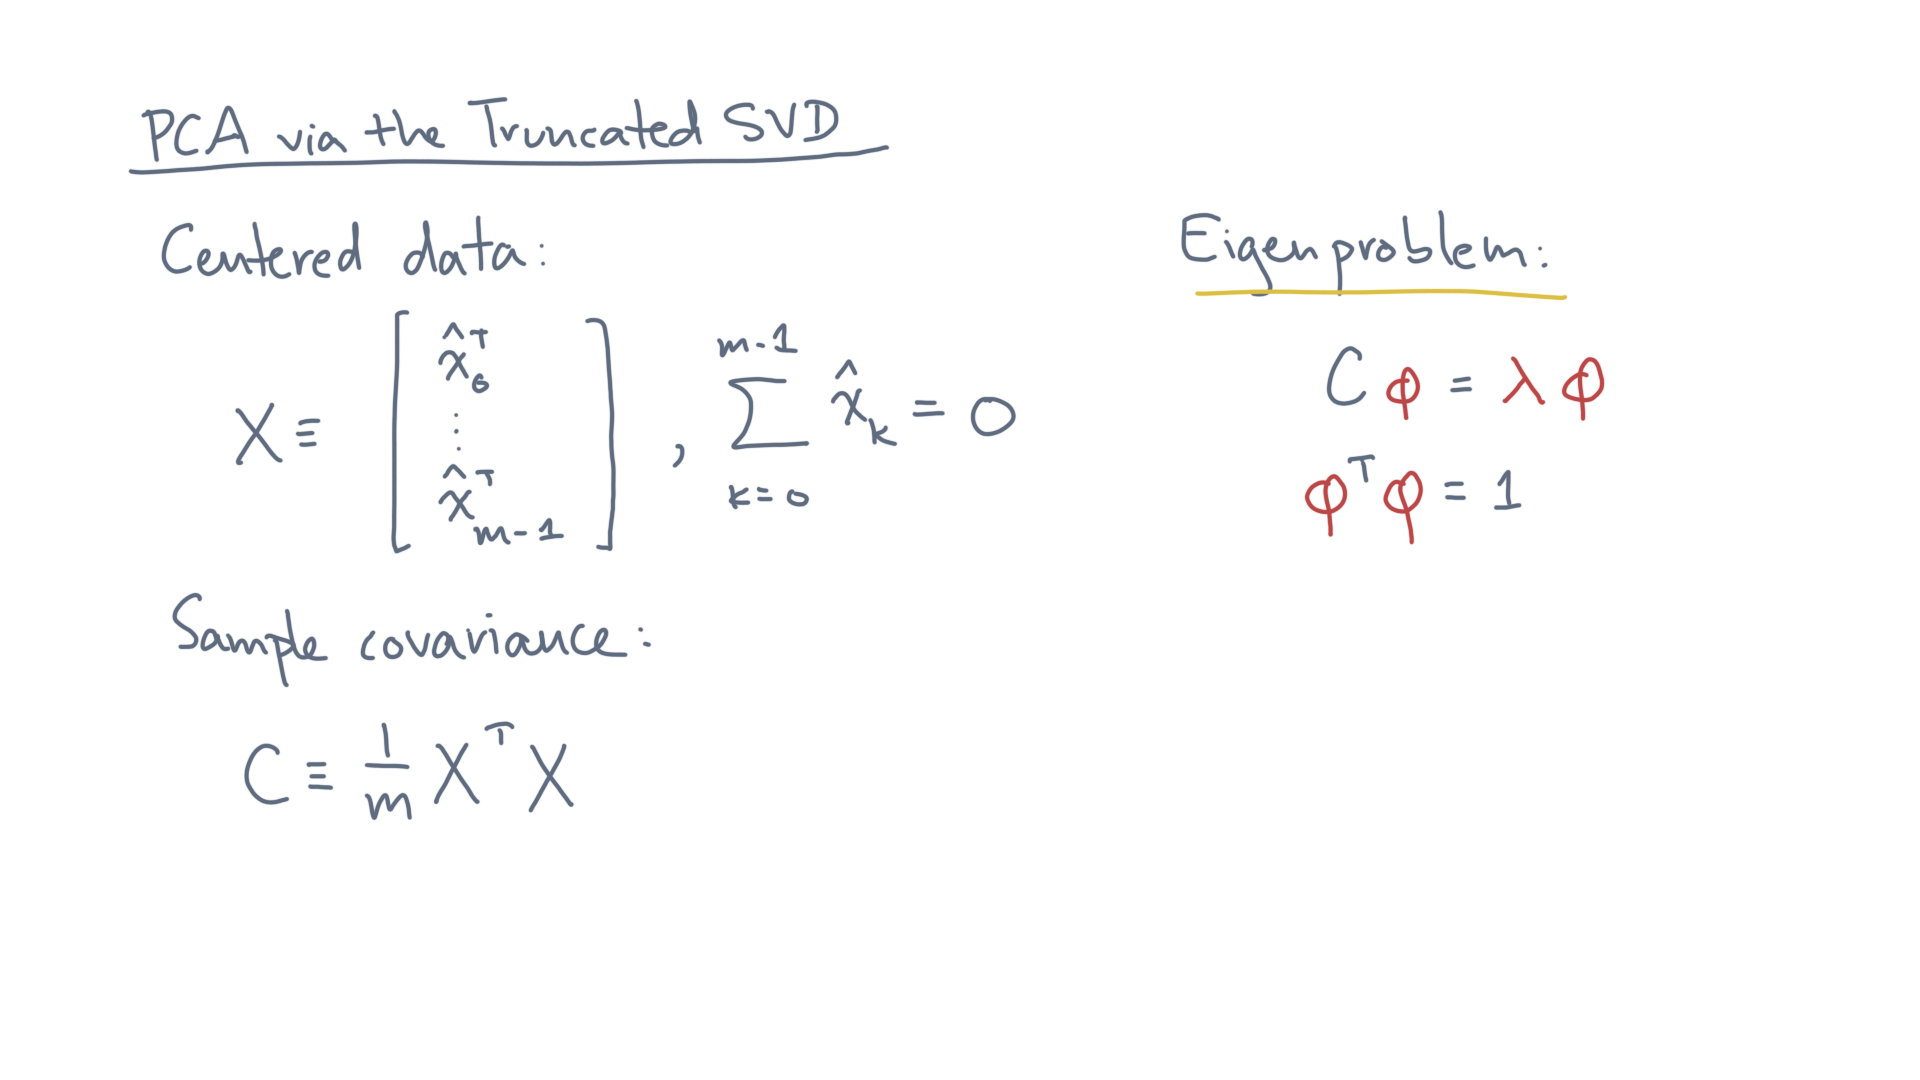 PCA via the Truncated SVD
Centered data:
X ≡ [ x̂₀ᵀ ⋮ x̂ₘ₋₁ᵀ ] , ∑ₖ₌₀ᵐ⁻¹ x̂ₖ = 0
Sample covariance:
C ≡ 1/m Xᵀ X
Eigenproblem:
C φ = λ φ
φᵀ φ = 1